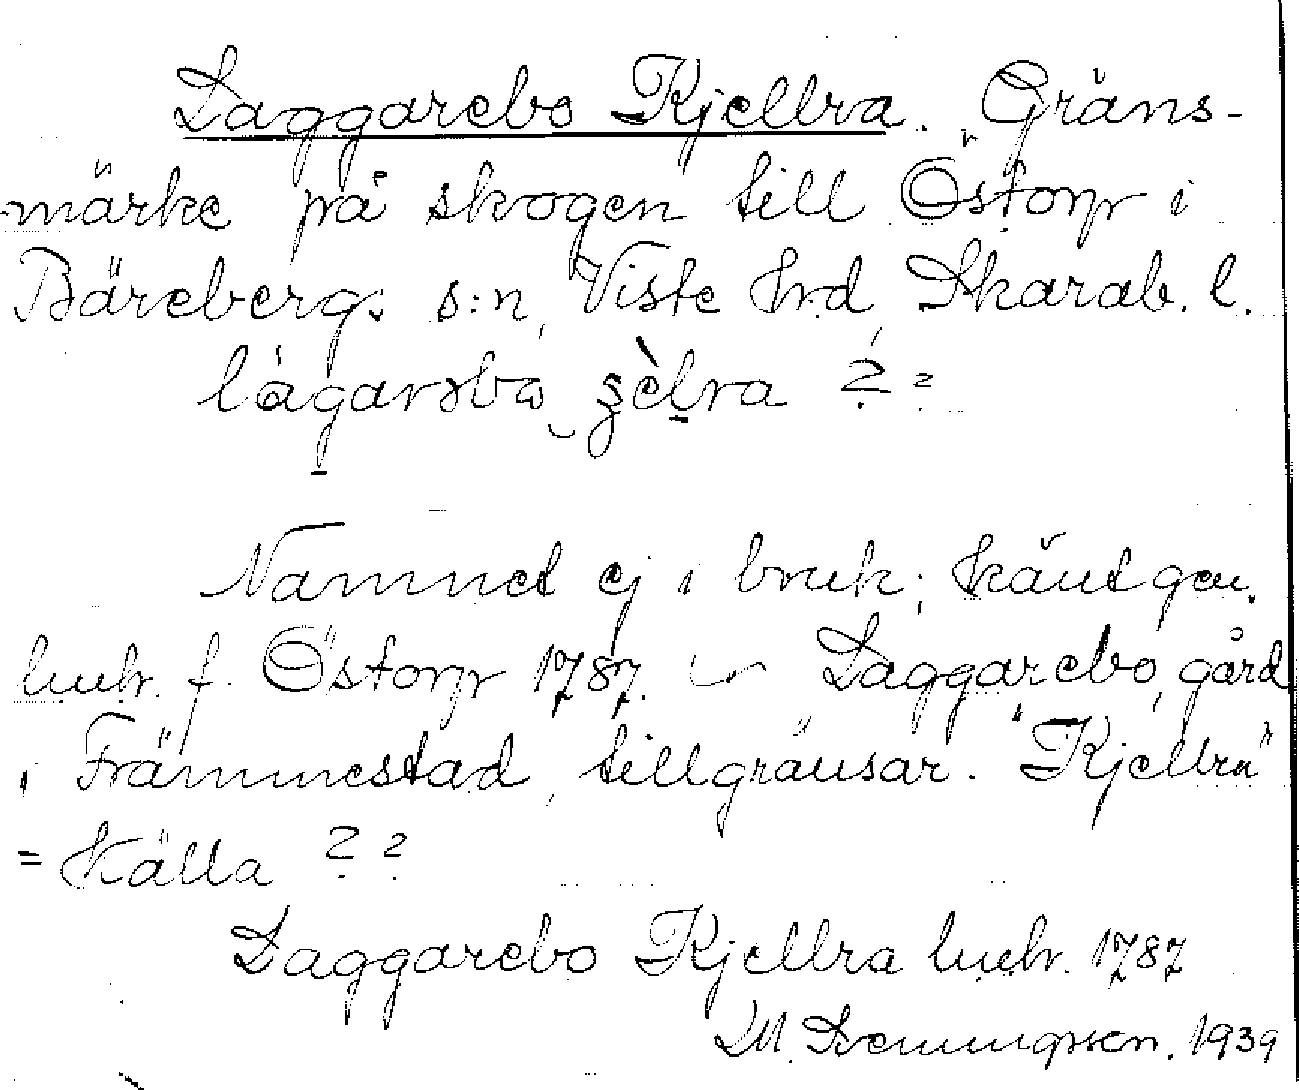 Laggarebo Kjellra. Gräns-
märke på skogen till Östorp i
Bärebergs s:n, Viste hrd, Skarab. l.
lagarsbo
Namnet ej i bruk; känt gen.
luh. f. Östorp 1787. Laggarebo, gård
i Främmestad, tillgränsar. "Kjellra"
= Källa ??
Laggarebo Kjellra luh. 1787
1939